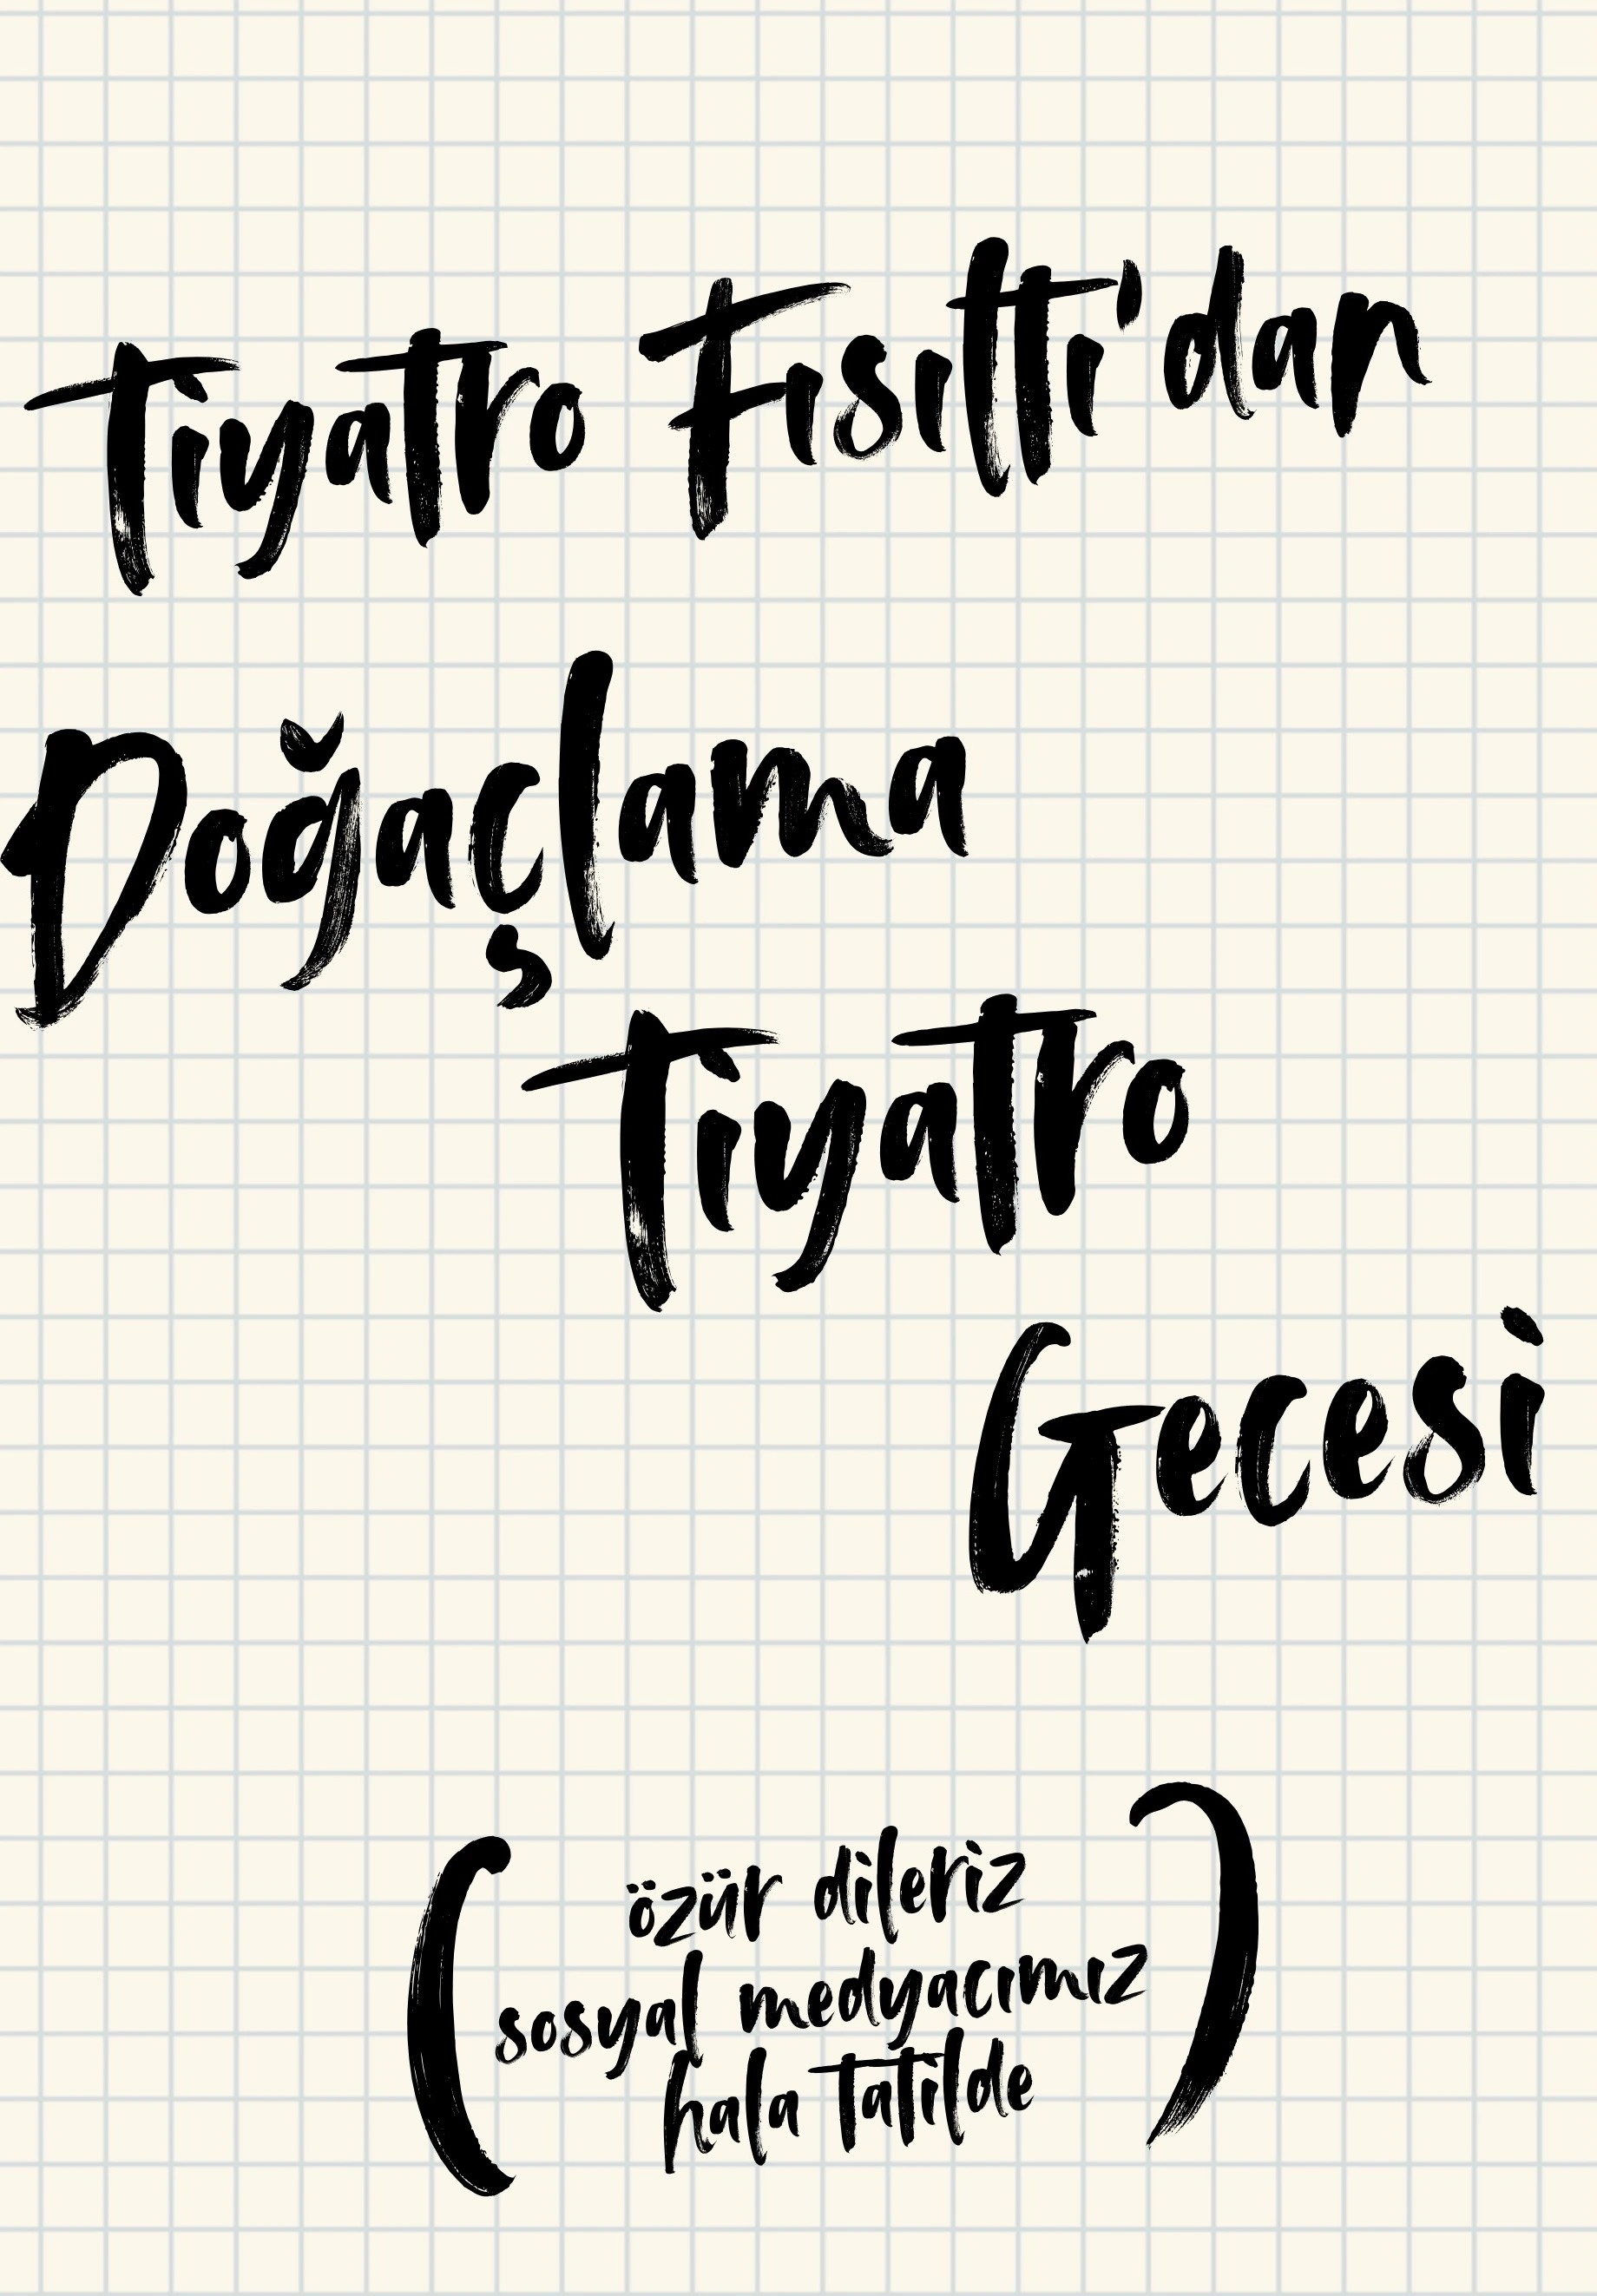 Tiyatro Fısıltı'dan
Doğaçlama
Tiyatro
Gecesi
( özür dileriz
sosyal medyacımız
hala tatilde )